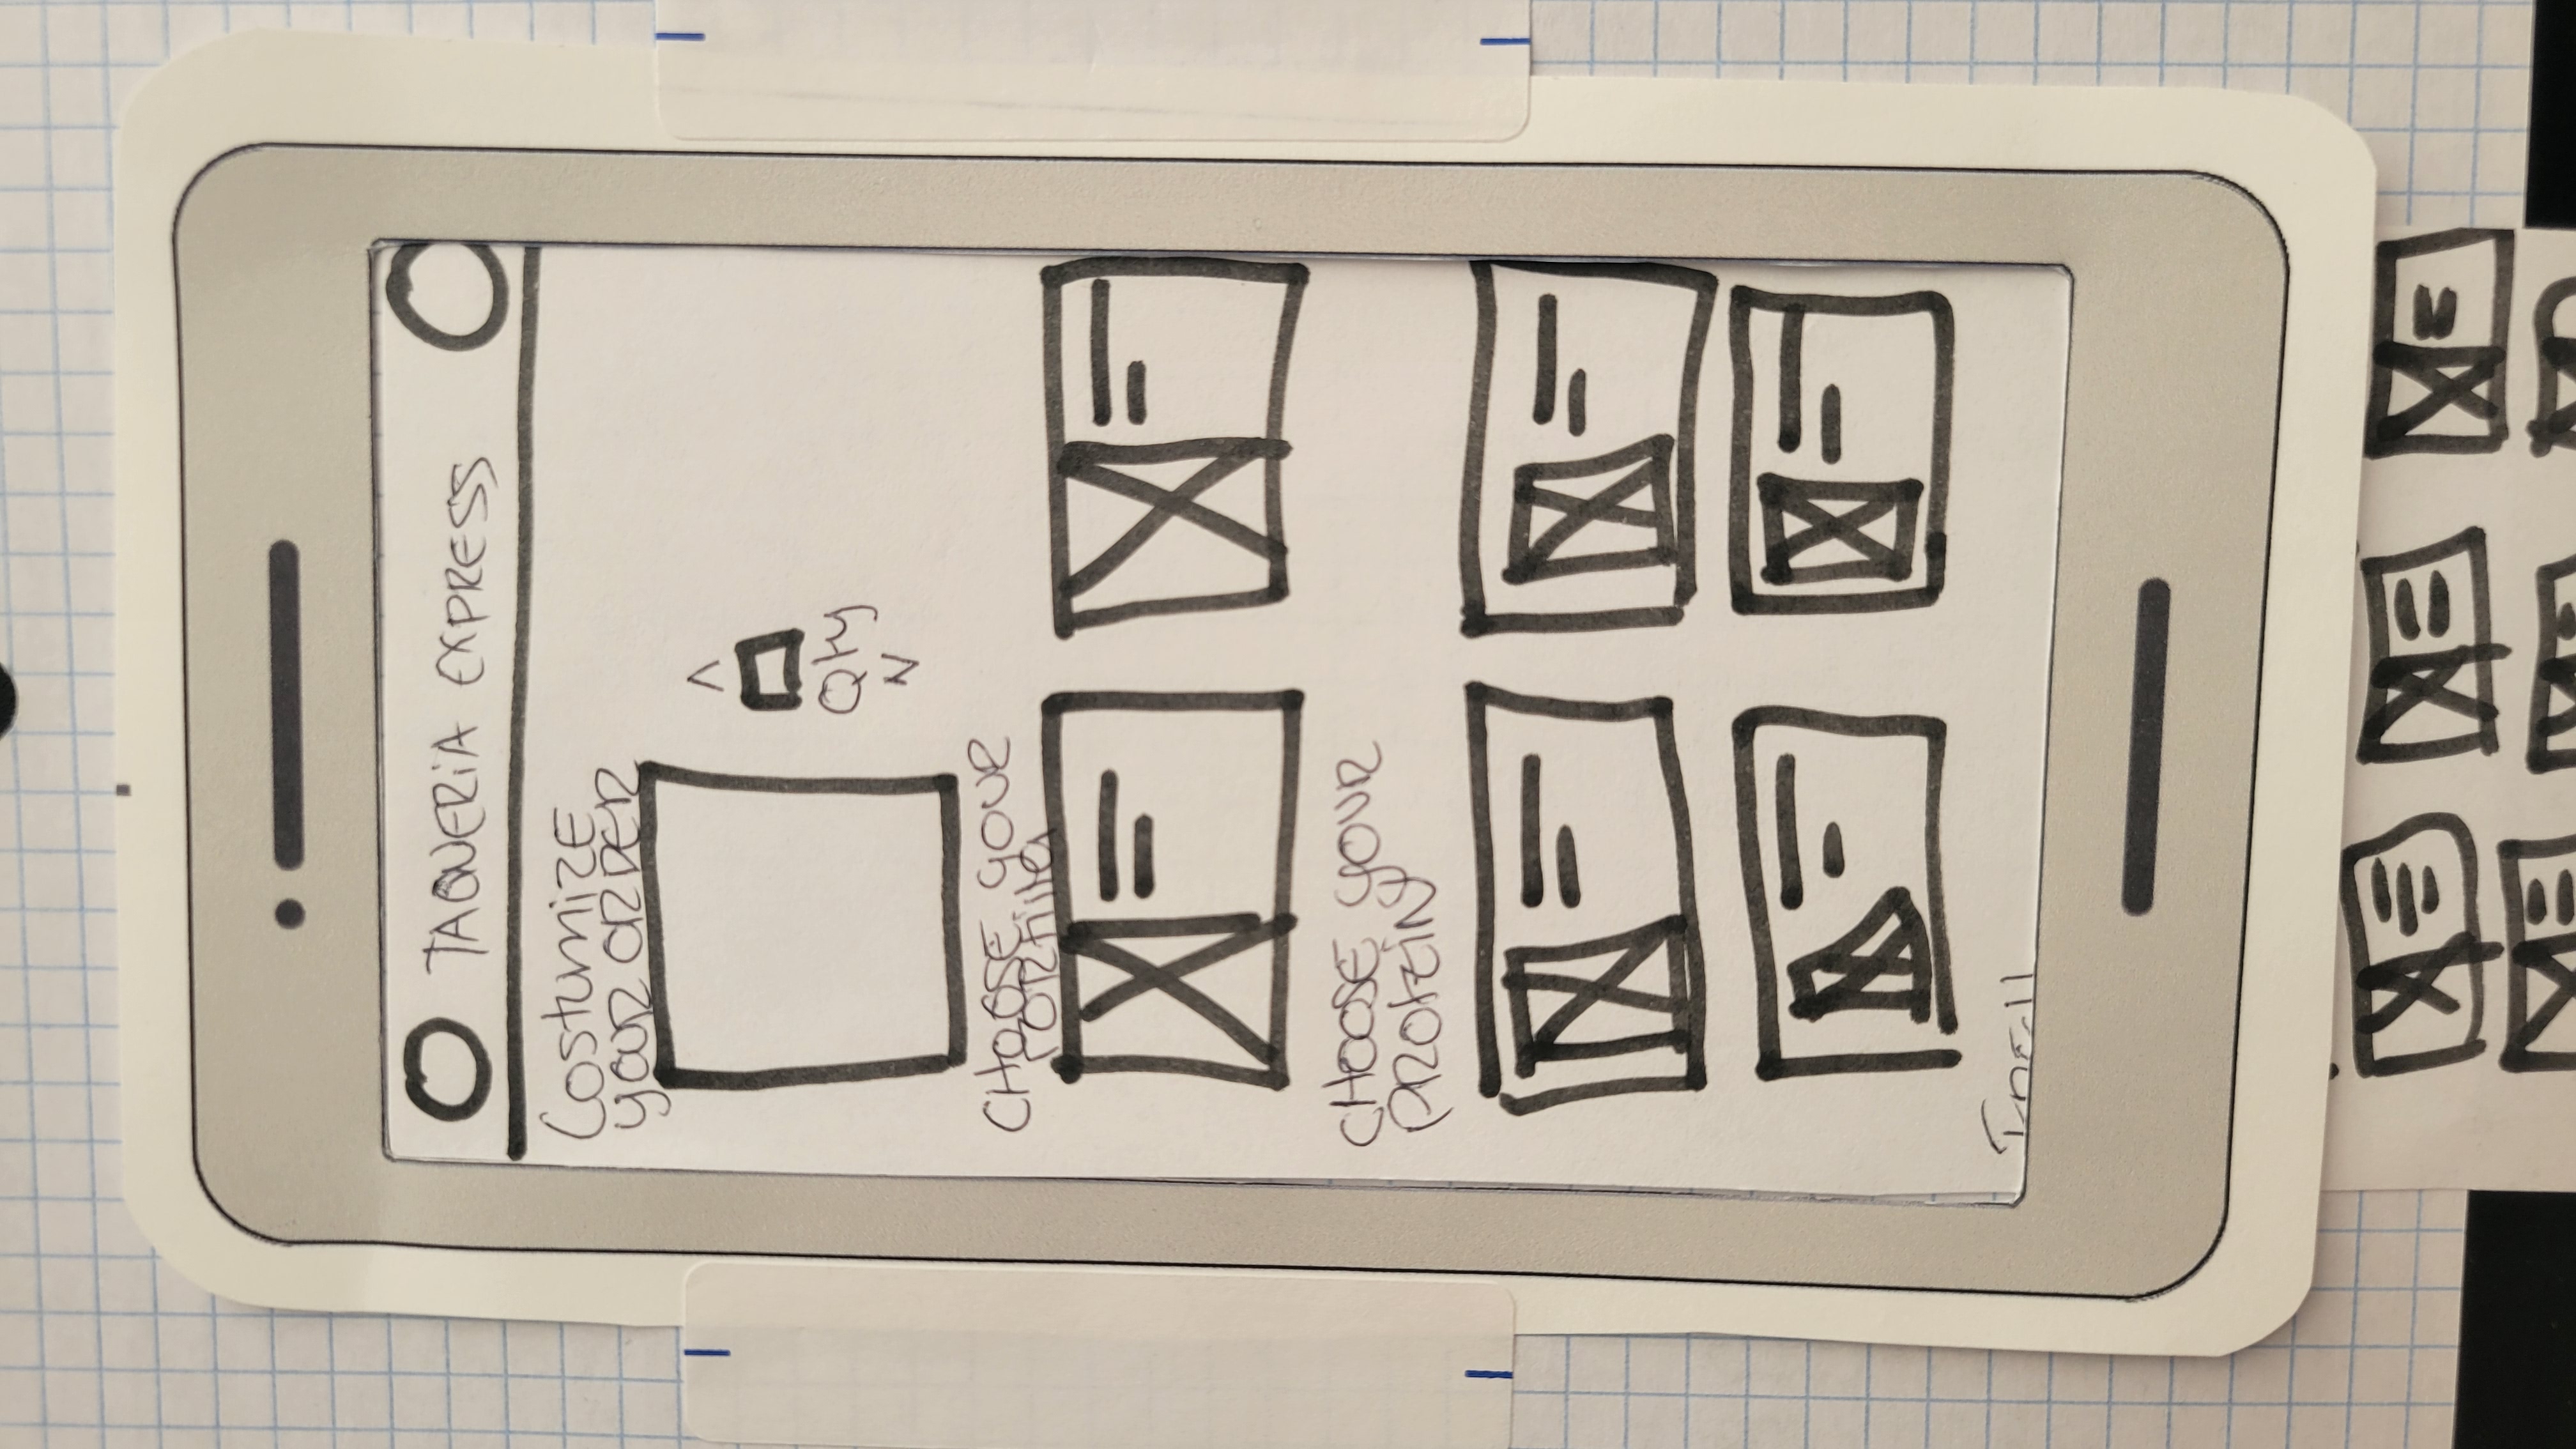 TAQUERiA EXPRESS
COSTUMIZE
YOUR ORDER
Qty
CHOOSE YOUR
TORTilla
CHOOSE YOUR
PROtEIN